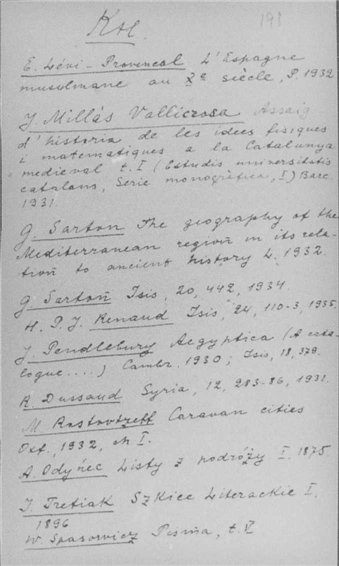 191
Кж.
E. Lévi-Provençal L'Espagne
musulmane au Xe siècle, P. 1932
J Millás Vallicrosa Assaig
d'historia de les idees fisiques
i matemàtiques a la Catalunya
medieval t. I (Estudis universitatis
catalans, Serie monogràfica, I) Barc.
1931.
G. Sarton The geography of the
Mediterranean region in its rela-
tion to ancient history L. 1932.
G. Sarton Isis, 20, 442, 1934
H. P. J. Renaud Isis, 24, 110-3, 1935.
J Pendlebury Aegyptica (A cata-
logue....) Cambr. 1930; Isis, 18, 379.
R. Dussaud Syria, 12, 283-86, 1931.
M. Rostovtzeff Caravan cities
Oxf., 1932, ch I.
A. Odyniec Listy z podróży I, 1875.
J. Tretiak Szkice Literackie I,
1896
W Spasowicz Pisma, t. V